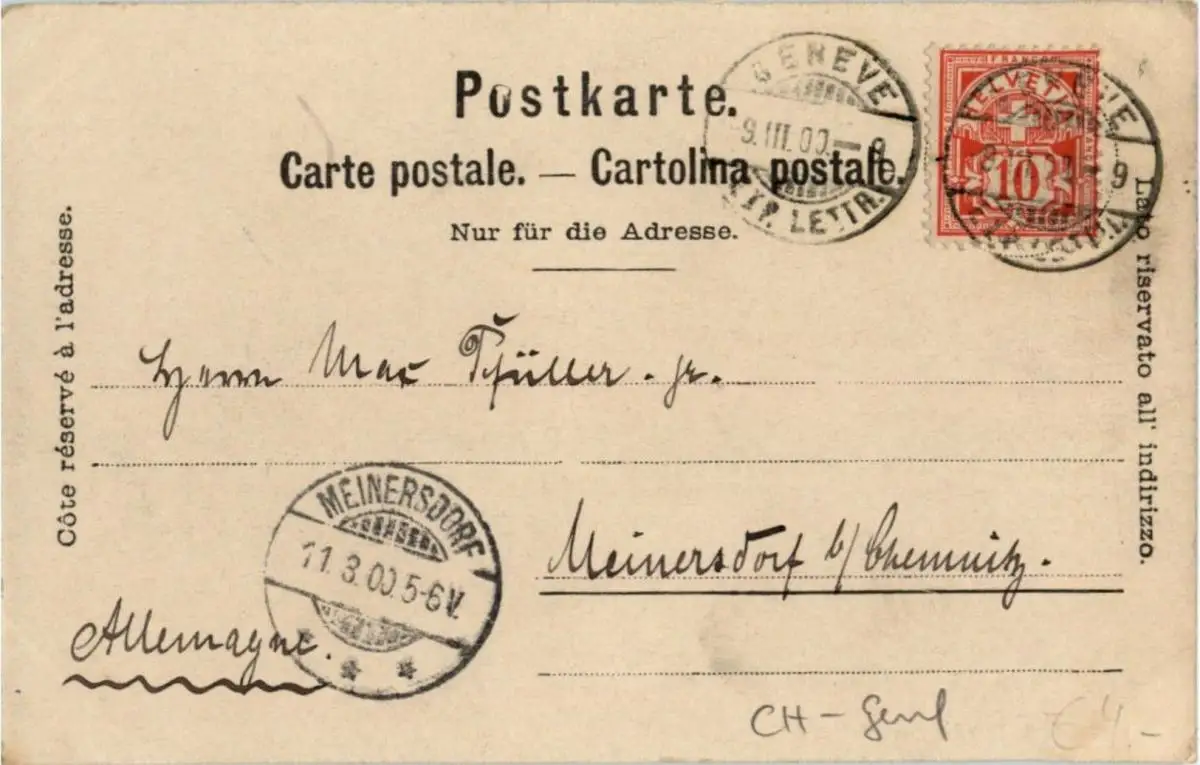 Postkarte.
Carte postale. — Cartolina postale.
Nur für die Adresse.
Côte réservé à l'adresse.
Lato riservato all' indirizzo.
GENEVE
9.III.00.— 9
EXP. LETTR.
FRANCO
HELVETIA
10
9
Herrn Max Schüller. jr.
MEINERSDORF
11.3.00.5-6V.
* *
Meinersdorf b/Chemnitz.
Allemagne.
CH - Genf
€4.-